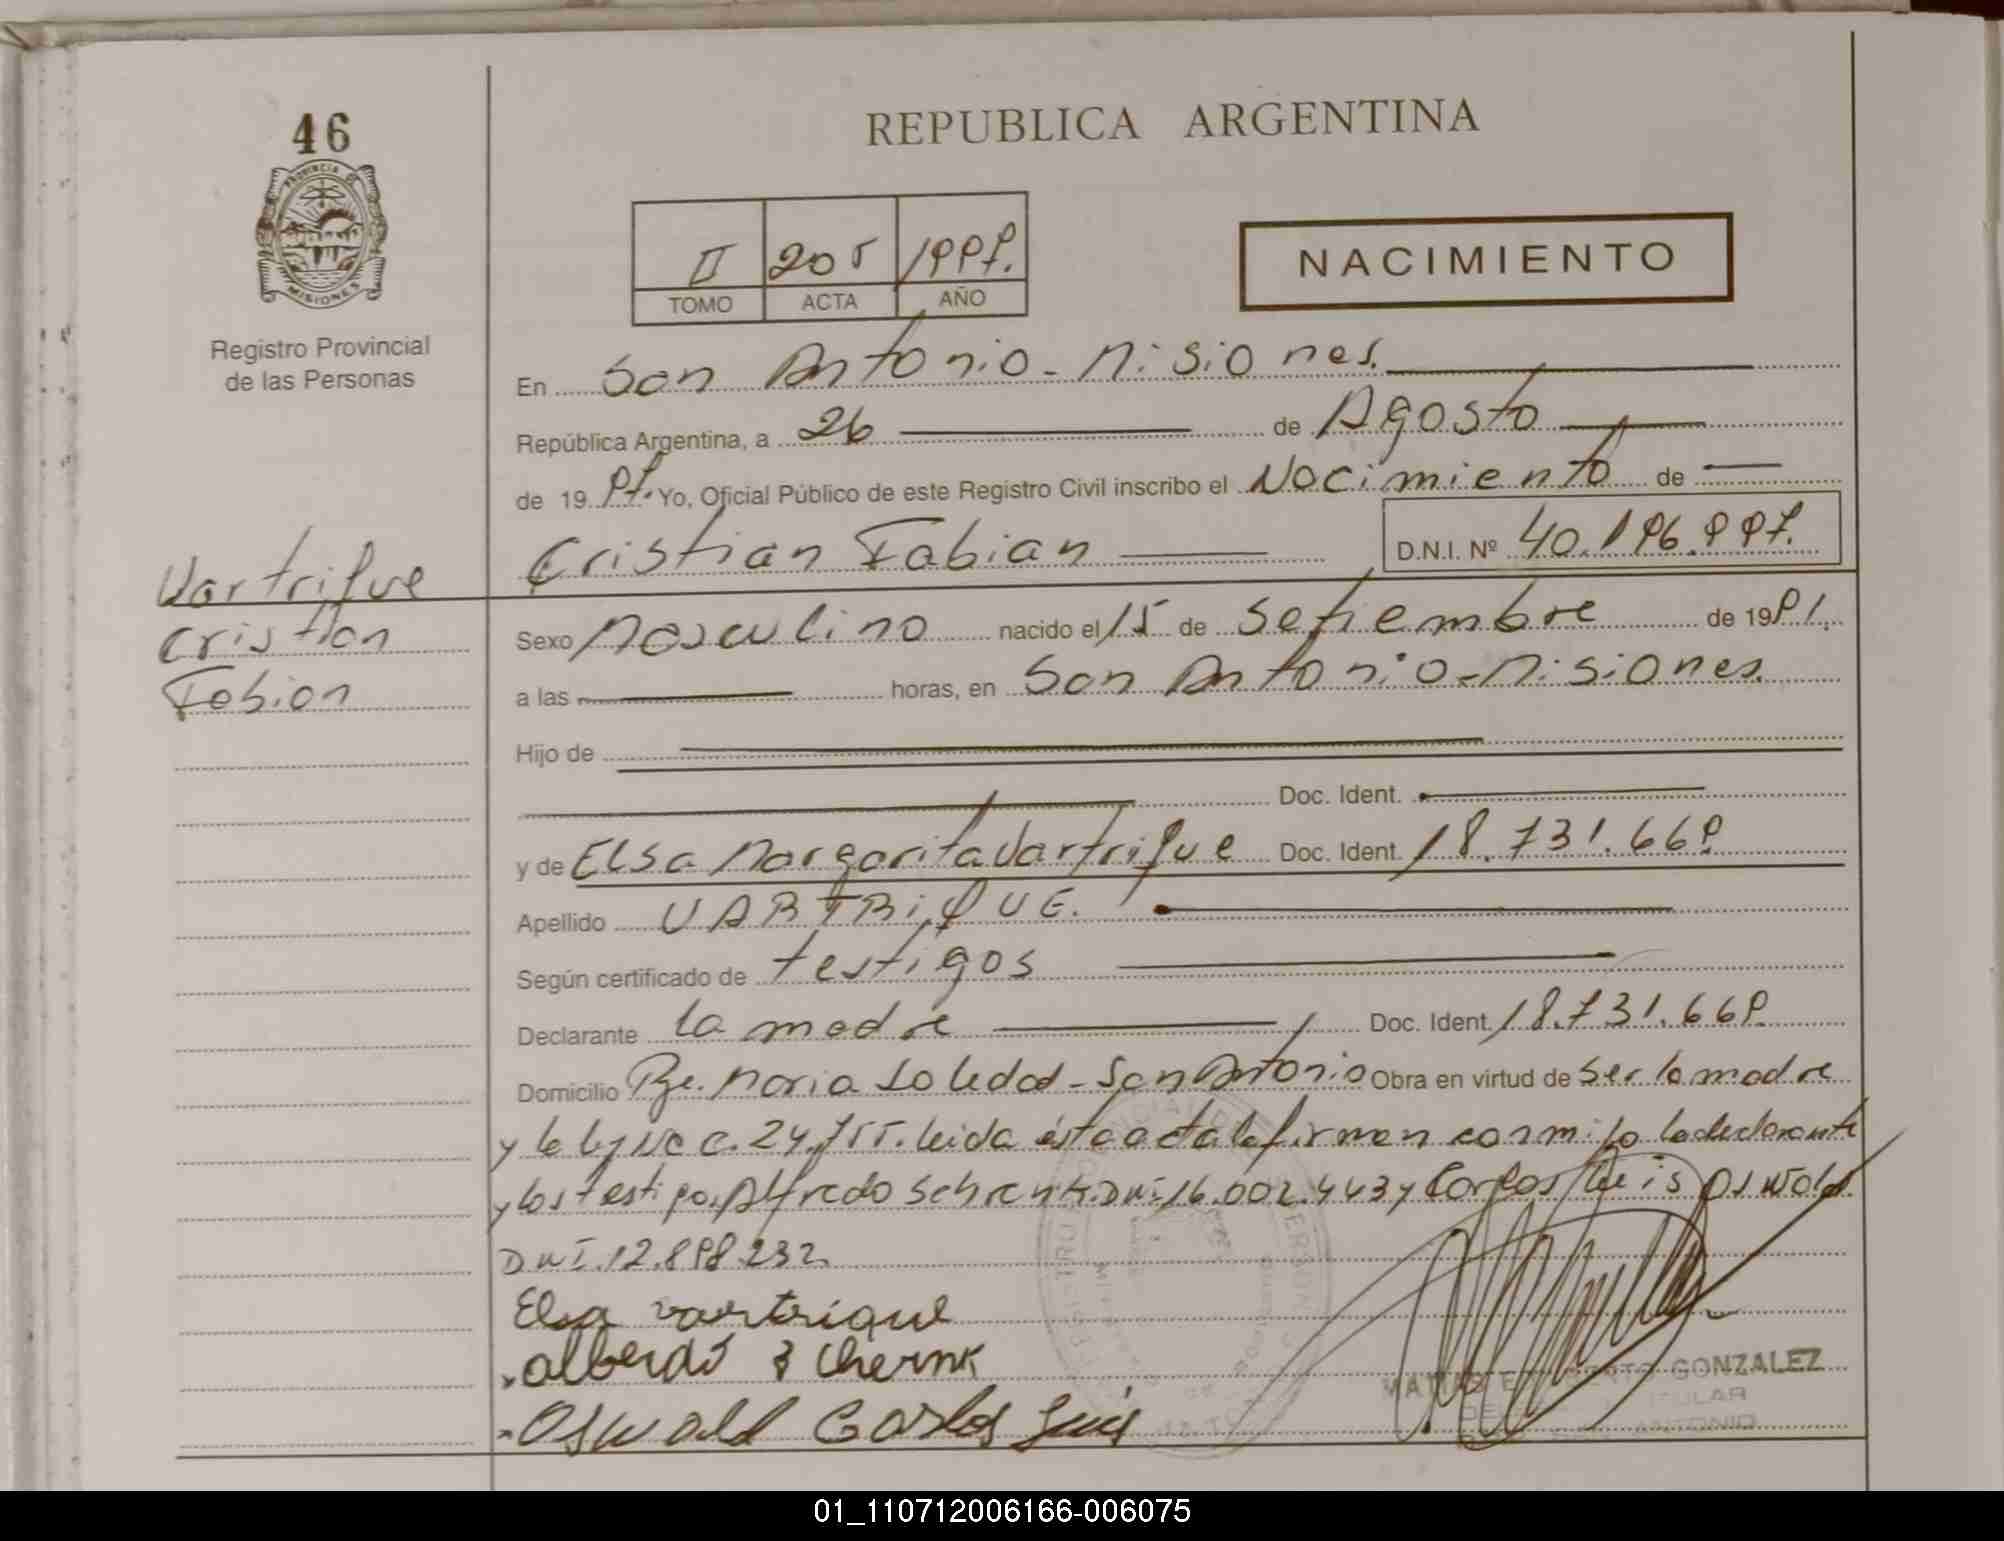 46
REPUBLICA ARGENTINA
PROVINCIA DE
MISIONES
Registro Provincial
de las Personas
II 205 1997.
TOMO ACTA AÑO
NACIMIENTO
En San Antonio - Misiones.
República Argentina, a 26 de Agosto
de 19 97. Yo, Oficial Público de este Registro Civil inscribo el Nacimiento de
Cristian Fabian D.N.I. Nº 40.196.997.
Vartrique
Cristian
Fabian
Sexo Masculino nacido el 15 de Setiembre de 1991.
a las horas, en San Antonio - Misiones.
Hijo de
Doc. Ident.
y de Elsa Margarita Vartrique Doc. Ident. 18.731.669
Apellido VARTRIQUE.
Según certificado de testigos
Declarante la madre Doc. Ident. 18.731.669
Domicilio Pje. Maria Soledad - San Antonio Obra en virtud de ser la madre
y la ley Nº 24.755. leida ésta acta la firman conmigo la declarante
y los testigos, Alfredo Schrenk. DNI 16.002.443 y Carlos Luis Oswald
DNI. 12.898.232
Elsa vartrique
Oswald Carlos Luis
GONZALEZ
ANTONIO
01_110712006166-006075